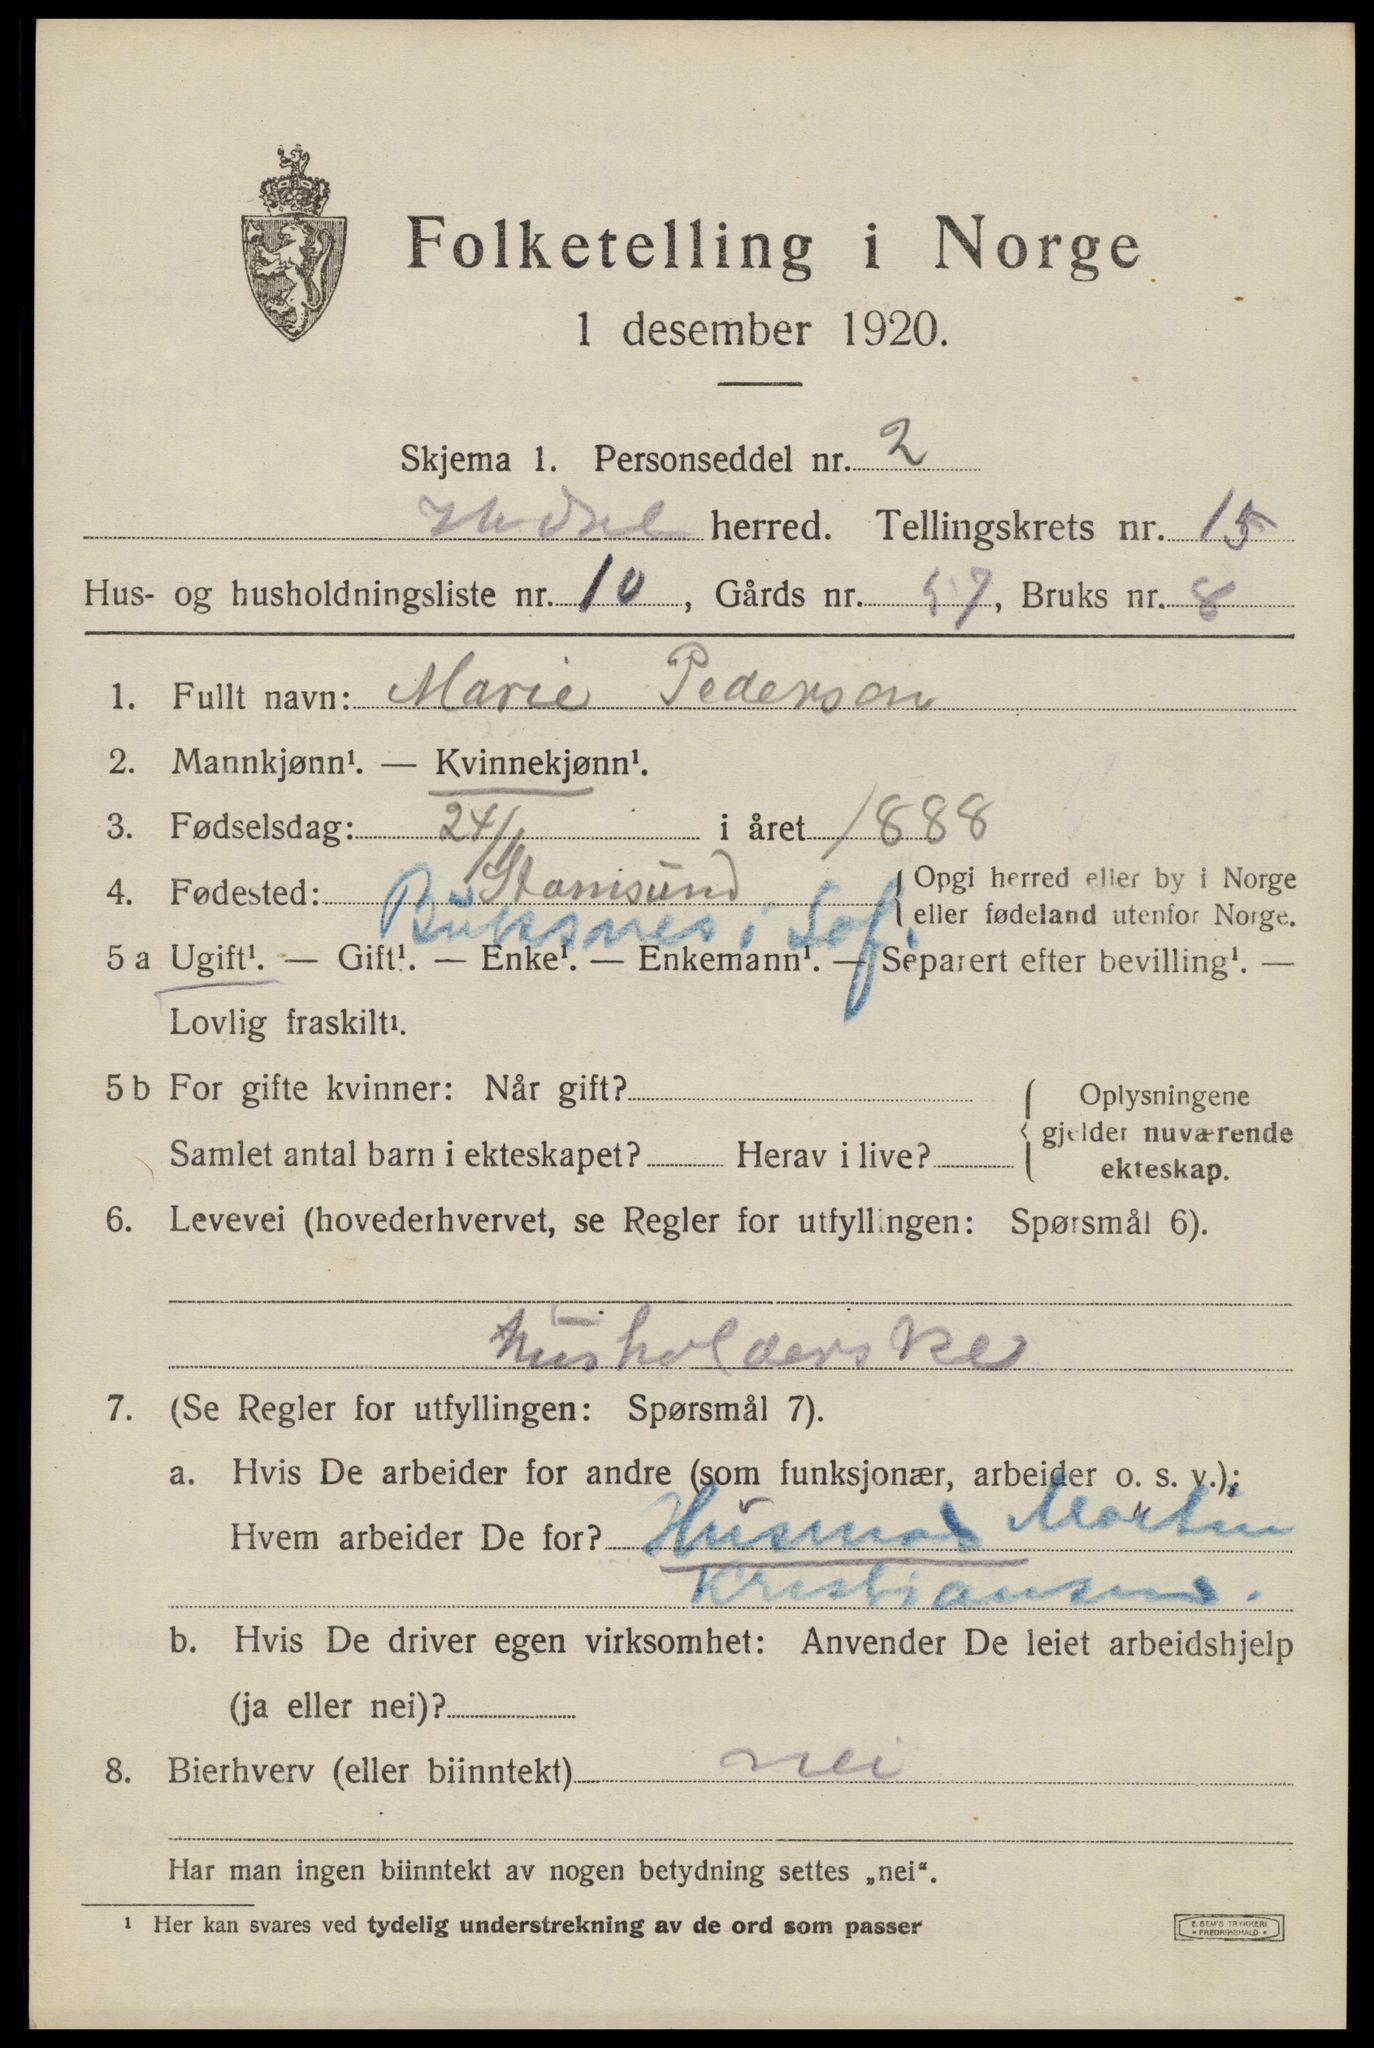 Folketelling i Norge
1 desember 1920.
Skjema 1. Personseddel nr. 2
Hadsel herred. Tellingskrets nr. 15
Hus- og husholdningsliste nr. 10, Gårds nr. 57, Bruks nr. 8
1. Fullt navn: Marie Pederson
2. Mannkjønn¹. — Kvinnekjønn¹.
3. Fødselsdag: 24/1 i året 1888
4. Fødested: Stamsund { Opgi herred eller by i Norge
eller fødeland utenfor Norge.
Buksnes i Lof.
5 a Ugift¹. — Gift¹. — Enke¹. — Enkemann¹. — Separert efter bevilling¹. —
Lovlig fraskilt¹.
5 b For gifte kvinner: Når gift? { Oplysningene
gjelder nuværende
Samlet antal barn i ekteskapet? Herav i live?
ekteskap.
6. Levevei (hovederhvervet, se Regler for utfyllingen: Spørsmål 6).
Husholderske
7. (Se Regler for utfyllingen: Spørsmål 7).
a. Hvis De arbeider for andre (som funksjonær, arbeider o. s. v.);
Hvem arbeider De for? Martin
Kristiansen.
b. Hvis De driver egen virksomhet: Anvender De leiet arbeidshjelp
(ja eller nei)?
8. Bierhverv (eller biinntekt) nei
Har man ingen biinntekt av nogen betydning settes „nei“.
¹ Her kan svares ved tydelig understrekning av de ord som passer
E. SEM'S TRYKKERI
* FREDRIKSHALD *